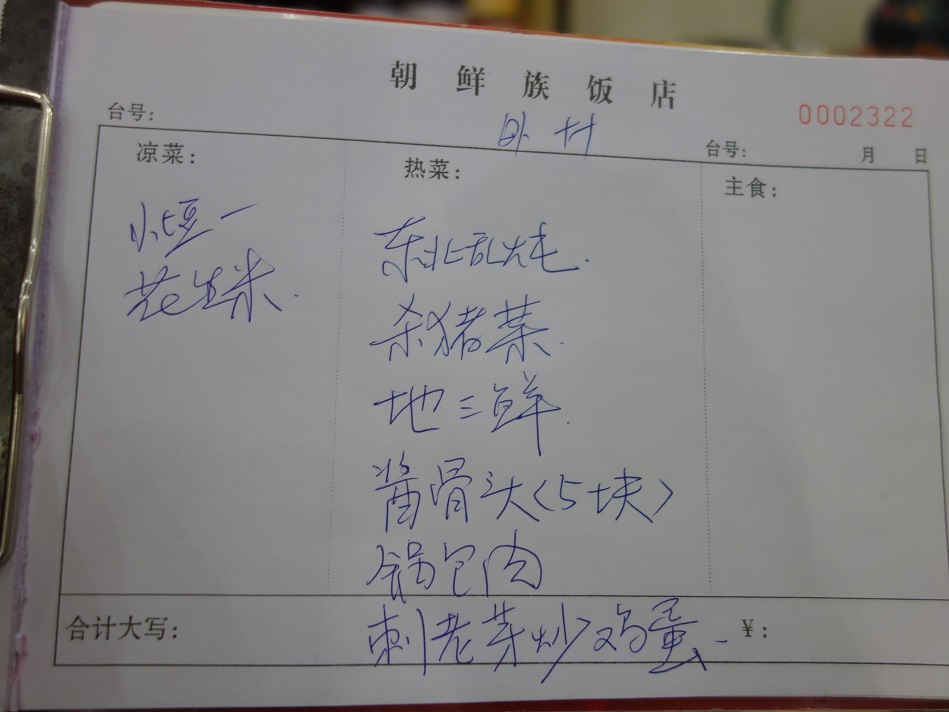 朝鲜族饭店
0002322
台号:
台号: 月 日
凉菜:
花生米.
热菜:
东北乱炖.
杀猪菜.
地三鲜.
酱骨头<5块>
锅包肉
刺老芽炒鸡蛋
主食:
合计大写:
¥: